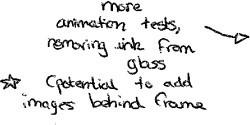 more
animation tests,
removing ink from
glass
☆ (potential to add
images behind frame